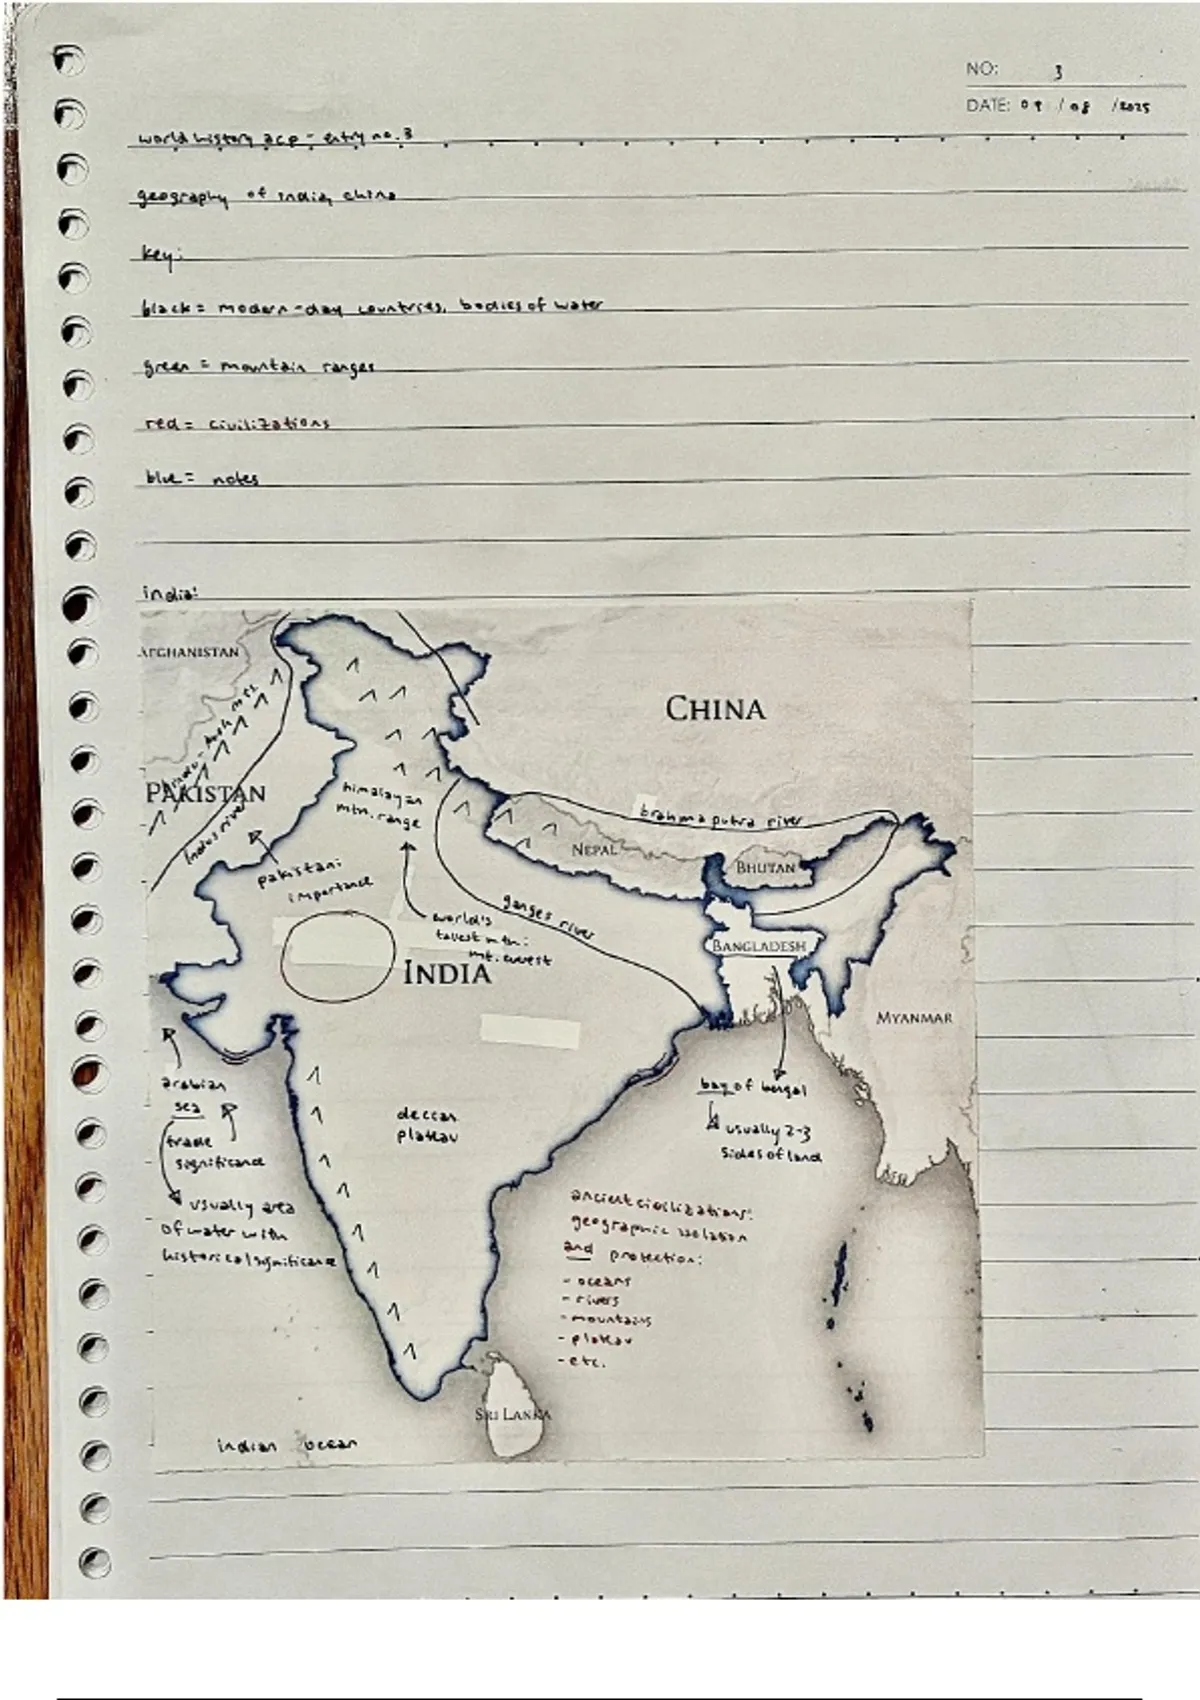 NO: 3
DATE: 09 / 08 / 2025
world history acp - entry no. 3
geography of india, china
key:
black = modern-day countries, bodies of water
green = mountain ranges
red = civilizations
blue = notes
india:
AFGHANISTAN
CHINA
hindu-kush mts.
PAKISTAN
indus river
himalayan
mtn. range
brahmaputra river
NEPAL
BHUTAN
pakistani
importance
ganges river
world's
tallest mtn:
mt. everest
BANGLADESH
INDIA
MYANMAR
arabian
sea
trade
significance
usually area
of water with
historical significance
deccan
plateau
bay of bengal
usually 2-3
sides of land
ancient civilizations:
geographic isolation
and protection:
- oceans
- rivers
- mountains
- plateau
- etc.
SRI LANKA
indian ocean